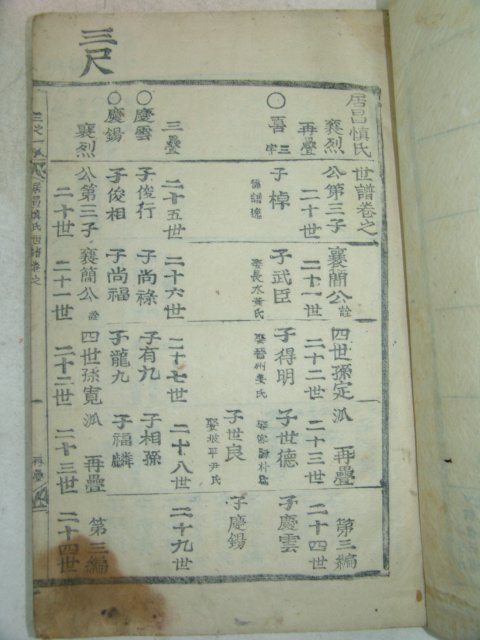 三尺
居昌愼氏世譜卷之
襄烈公第三子襄簡公諡四世孫定派再疊第三編
再疊 二十世 二十一世 二十二世 二十三世 二十四世
○喜 子棹 子武臣 子得明 子世德 子慶雲
娶長水黃氏 娶晉州姜氏
子世良 子慶錫
娶坡平尹氏
三疊 二十五世 二十六世 二十七世 二十八世 二十九世
○慶雲 子俊行 子尚祿 子有九 子相孫
○慶錫 子俊相 子尚福 子龍九 子福麟
襄烈公第三子襄簡公諡四世孫寬派再疊第三編
二十世 二十一世 二十二世 二十三世 二十四世
居昌愼氏世譜卷之
再疊